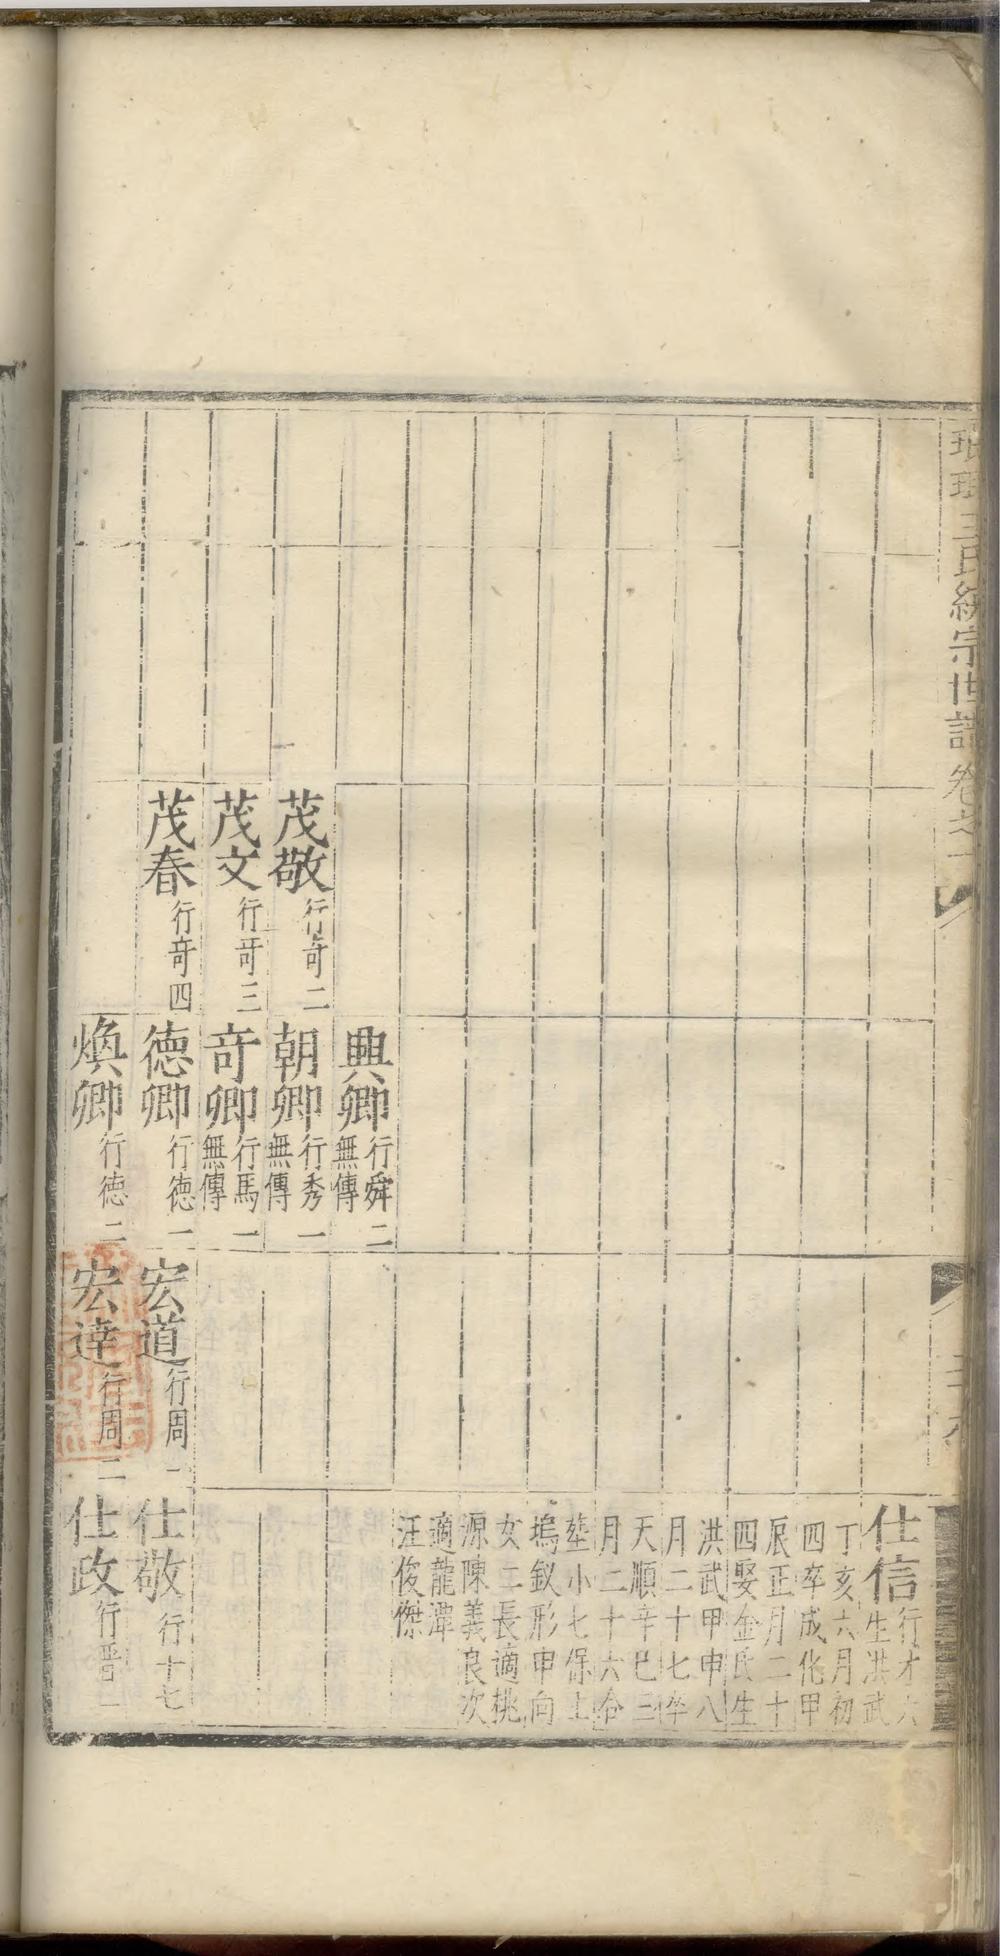 琅琊王氏統宗世譜卷之一
茂敬行奇二
茂文行哥三
茂春行奇四
興卿行舜二
無傳
朝卿行秀一
無傳
奇卿行馬一
無傳
德卿行德一
煥卿行德二
宏道行周一
宏達行周二
仕信行才六
生洪武
丁亥六月初
四卒成化甲
辰正月二十
四娶金氏生
洪武甲申八
月二十七卒
天順辛巳三
月二十六合
塟小七保土
塢釵形申向
女二長適桃
源陳義良次
適龍潭
汪俊傑
仕敬行十七
仕政行晋一